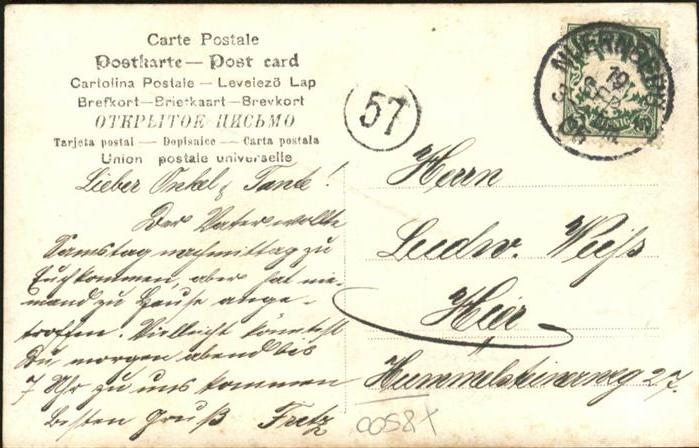 Carte Postale
Postkarte — Post card
Cartolina Postale — Levelező Lap
Brefkort — Briefkaart — Brevkort
ОТКРЫТОЕ ПИСЬМО
Tarjeta postal — Dopisnice — Carta postala
Union postale universelle
57
NUERNBERG
Lieber Onkel & Tante!
Der Vater wollte
Samstag nachmittag zu
Euch kommen, aber hat nie-
mand zu Hause ange-
troffen. Vielleicht könntest
Du morgen abend bis
7 Uhr zu uns kommen
besten Gruß Fretz
Herrn
Ludw. Weiß
Hier
Hummelsteinerweg 27.
0058X